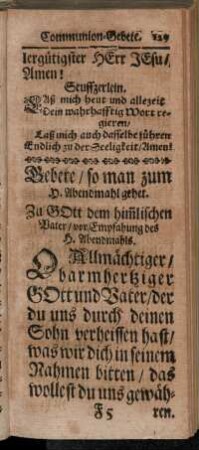 Communion-Gebete. 129
lergütigster HErr JEsu/
Amen!
Seuffzerlein.
Laß mich heut und allezeit
Dein wahrhafftig Wort re-
gieren/
Laß mich auch dasselbe führen
Endlich zu der Seeligkeit/Amen!
Gebete/so man zum
H. Abendmahl gehet.
Zu GOtt dem him̃lischen
Vater/vor Empfahung des
H. Abendmahls.
O Allmächtiger/
barmhertziger
GOtt und Vater/der
du uns durch deinen
Sohn verheissen hast/
was wir dich in seinem
Nahmen bitten/das
wollest du uns gewäh-
F5 ren.